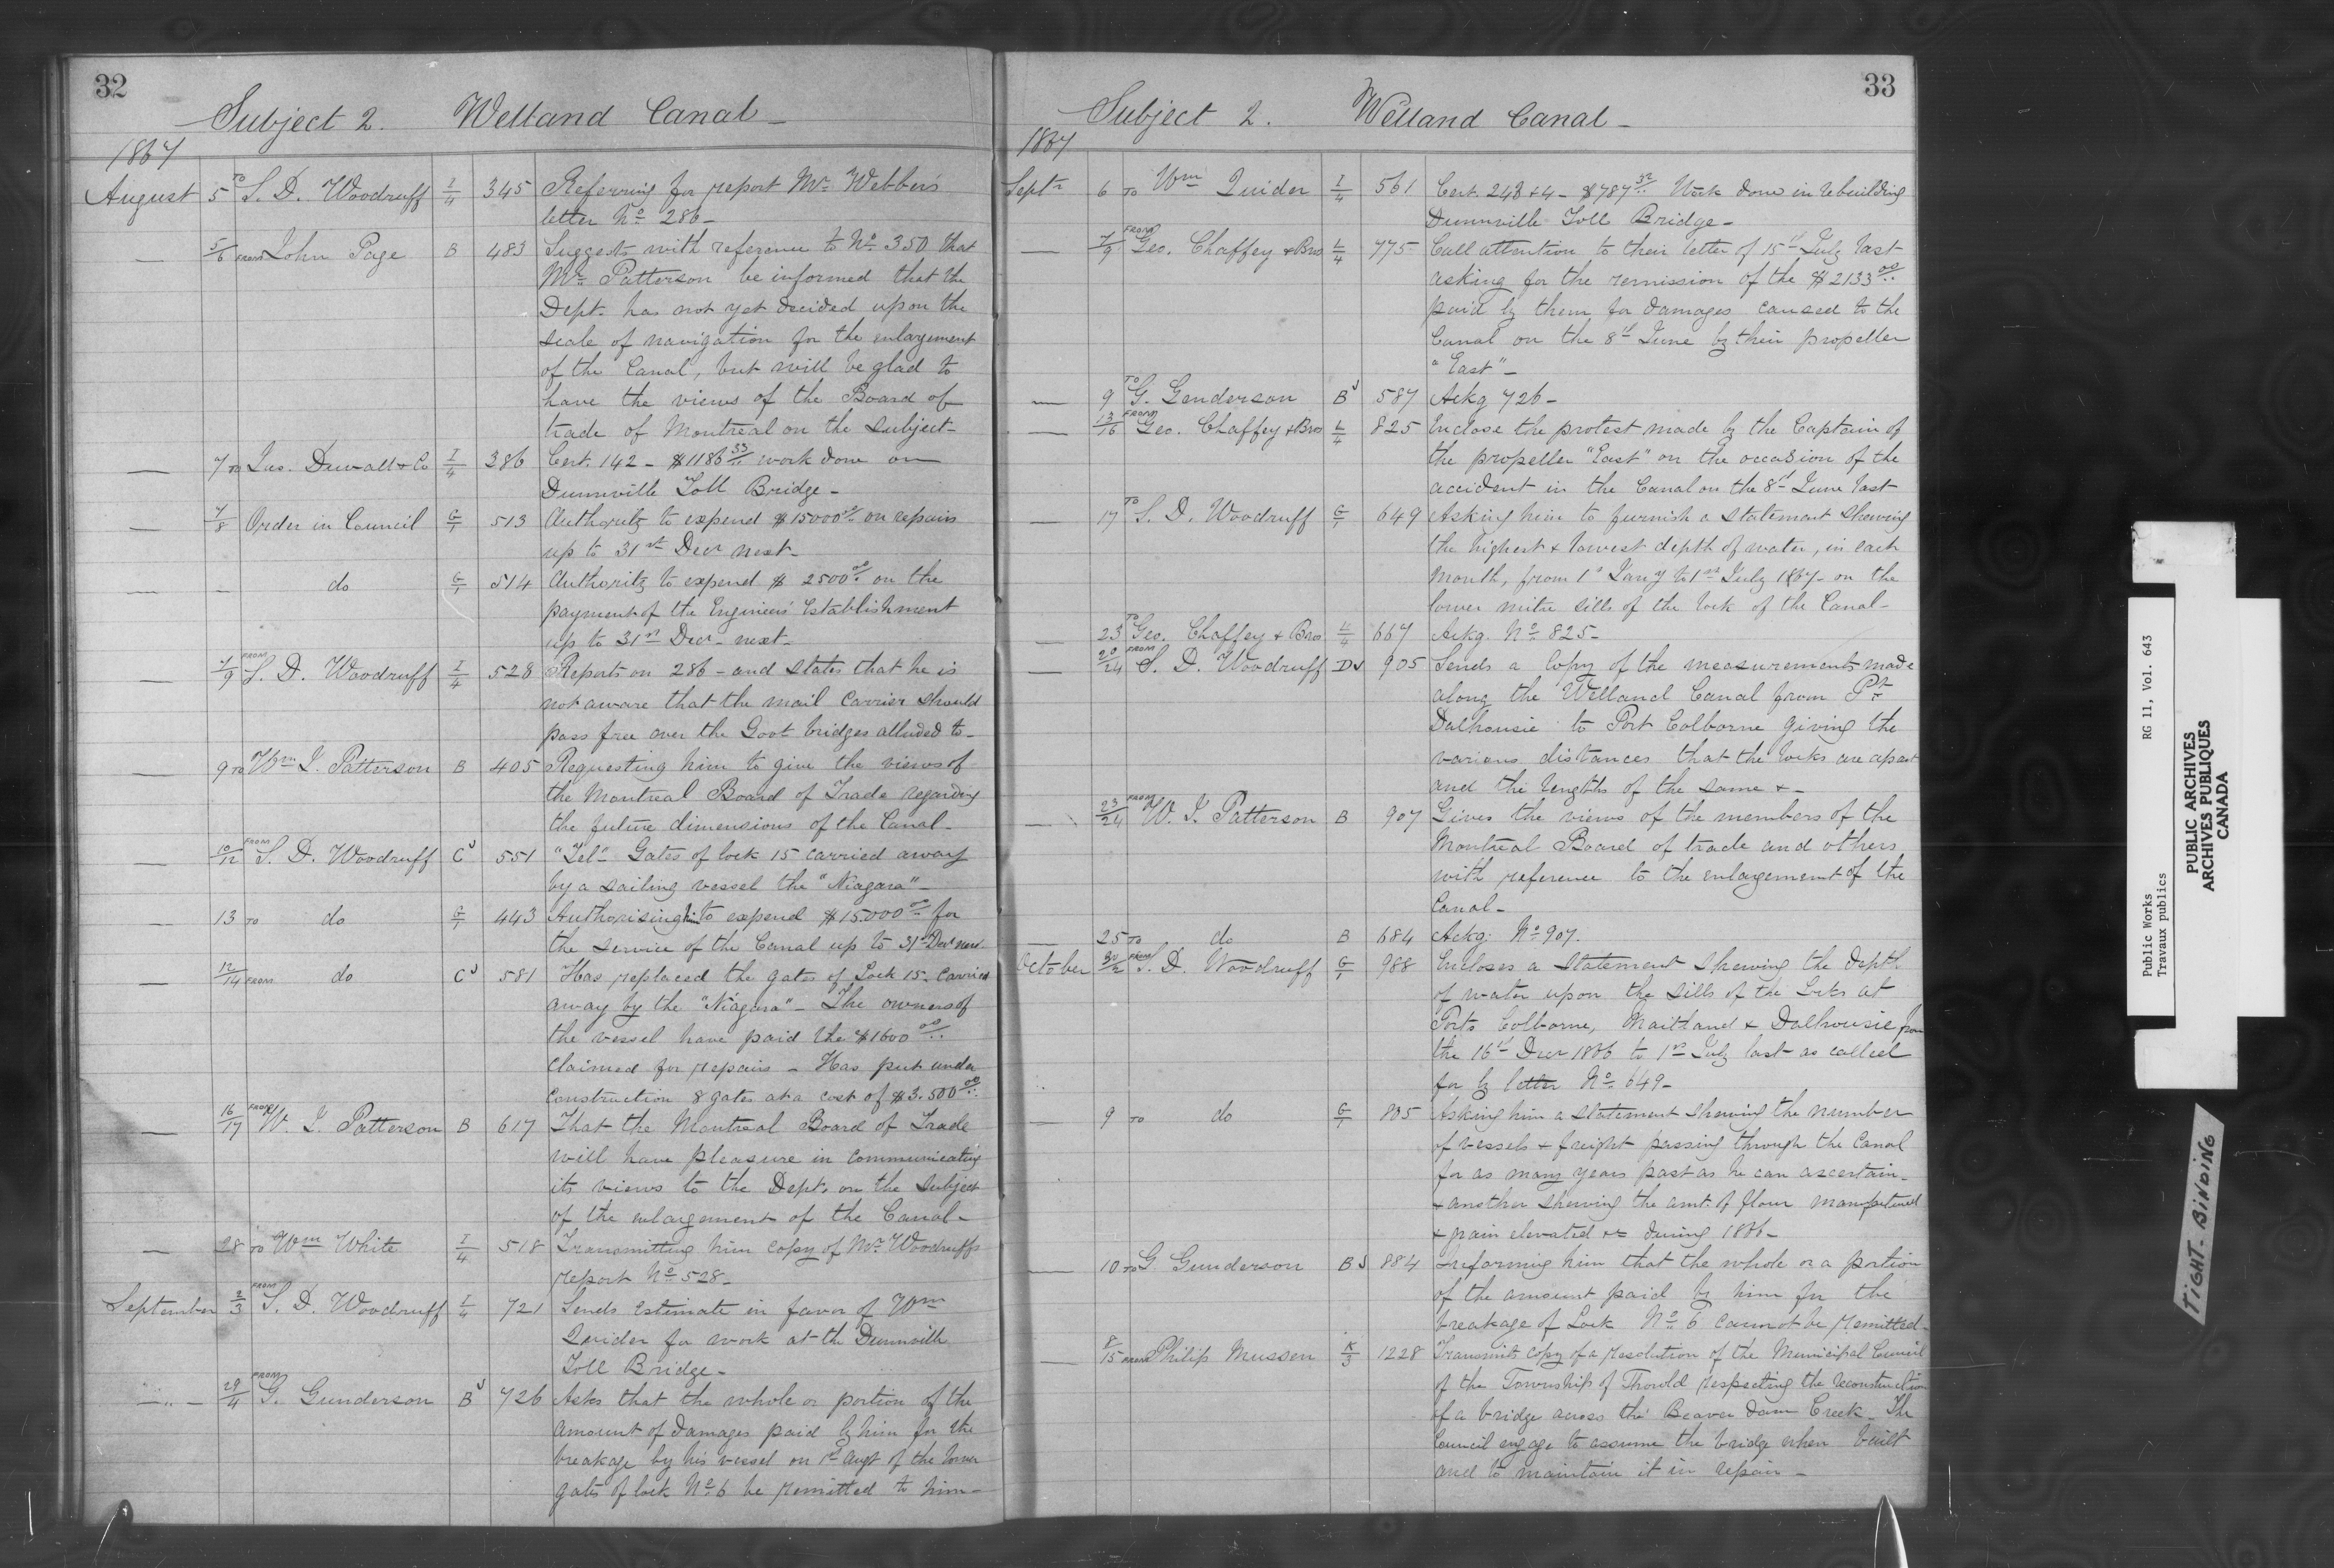 32
Subject 2. Welland Canal -
1867
August 5 TO S. D. Woodruff I/4 345 Referring for report Mr. Webber's
letter No. 286 -
— 5/6 FROM John Page B 483 Suggests with reference to No. 350 that
Mr. Patterson be informed that the
Dept. has not yet decided upon the
scale of navigation for the enlargement
of the Canal, but will be glad to
have the views of the Board of
trade of Montreal on the subject -
— 7 TO Jas. & Co I/4 386 Cert. 142 - $1186 33/.. work done on
Dunnville Toll Bridge -
— 7/8 Order in Council G/1 513 Authority to expend $15000 00/.. on repairs
up to 31st Decr next -
— - do G/1 514 Authority to expend $2500 00/.. on the
payment of the Engineers' Establishment
up to 31st Decr - next -
— 7/9 FROM S. D. Woodruff I/4 528 Reports on 286 - and states that he is
not aware that the mail carrier should
pass free over the Govt bridges alluded to -
— 9 TO Wm J. Patterson B 405 Requesting him to give the views of
the Montreal Board of Trade regarding
the future dimensions of the Canal -
— 10/12 FROM S. D. Woodruff C 551 "Tel" Gates of lock 15 carried away
by a sailing vessel the "Niagara" -
— 13 TO do G/1 443 Authorising him to expend $15.000 00/.. for
the service of the Canal up to 31st Decr next
— 12/14 FROM do C 581 Has replaced the gates of Lock 15 - carried
away by the "Niagara" - The owners of
the vessel have paid the $1600 00/..
claimed for repairs - Has put under
construction 8 gates at a cost of $3.500 00/..
— 16/17 FROM W. J. Patterson B 617 That the Montreal Board of Trade
will have pleasure in communicating
its views to the Dept. on the subject
of the enlargement of the Canal -
— 28 TO Wm White I/4 518 Transmitting him copy of Mr. Woodruff's
report No. 528 -
September 2/3 FROM S. D. Woodruff I/4 721 Sends Estimate in favor of Wm
Quider for work at the Dunnville
Toll Bridge -
— 29/4 FROM G. Gunderson B 726 Asks that the whole or portion of the
amount of damages paid by him for the
breakage by his vessel on 1st Augt of the lower
gates of lock No. 6 be remitted to him -
33
Subject 2. Welland Canal -
1867
Septr 6 TO Wm Quider I/4 561 Cert. & 4 - $787 32/.. Work done in rebuilding
Dunnville Toll Bridge -
— 7/9 FROM Geo. Chaffey & Bros L/4 775 Call attention to their letter of 15th July last
asking for the remission of the $2133 00/..
paid by them for damages caused to the
Canal on the 8th June by their propeller
"East" -
— 9 TO G. Genderson B 587 Ackg 726 -
— 13/16 FROM Geo. Chaffey & Bros L/4 825 Inclose the protest made by the Captain of
the propeller "East" on the occasion of the
accident in the Canal on the 8th June last
— 17 TO S. D. Woodruff G/1 649 Asking him to furnish a statement shewing
the highest & lowest depth of water, in each
month, from 1st Jany to 1st July 1867 - on the
lower mitre sills of the lock of the Canal -
— 23 TO Geo. Chaffey & Bros L/4 667 Ackg. No. 825 -
— 20/24 FROM S. D. Woodruff D 905 Sends a Copy of the measurements made
along the Welland Canal from Pt
Dalhousie to Port Colborne giving the
various distances that the locks are apart
and the lengths of the same & -
— 23/24 FROM W. J. Patterson B 907 Gives the views of the members of the
Montreal Board of trade and others
with reference to the enlargement of the
Canal -
— 25 TO do B 684 Ackg. No. 907.
October 30/2 FROM S. D. Woodruff G/1 988 Encloses a statement shewing the depth
of water upon the sills of the Locks at
Ports Colborne, Maitland & Dalhousie from
the 16th Decr 1866 to 1st July last as called
for by letter No. 649 -
— 9 TO do G/1 805 Asking him a statement shewing the number
of vessels & freight passing through the Canal
for as many years past as he can ascertain -
& another shewing the amt of flour manufactured
& grain elevated &c during 1866 -
— 10 TO G. Gunderson B 884 Informing him that the whole or a portion
of the amount paid by him for the
breakage of Lock No. 6 cannot be remitted -
— 8/15 FROM Philip Mussen K/3 1228 Transmits copy of a resolution of the Municipal Council
of the Township of Thorold respecting the reconstruction
of a bridge across the Beaver dam Creek - The
Council engage to assume the bridge when built
and to maintain it in repair -
Public Works RG 11, Vol. 643
Travaux publics
PUBLIC ARCHIVES
ARCHIVES PUBLIQUES
CANADA
TIGHT - BINDING